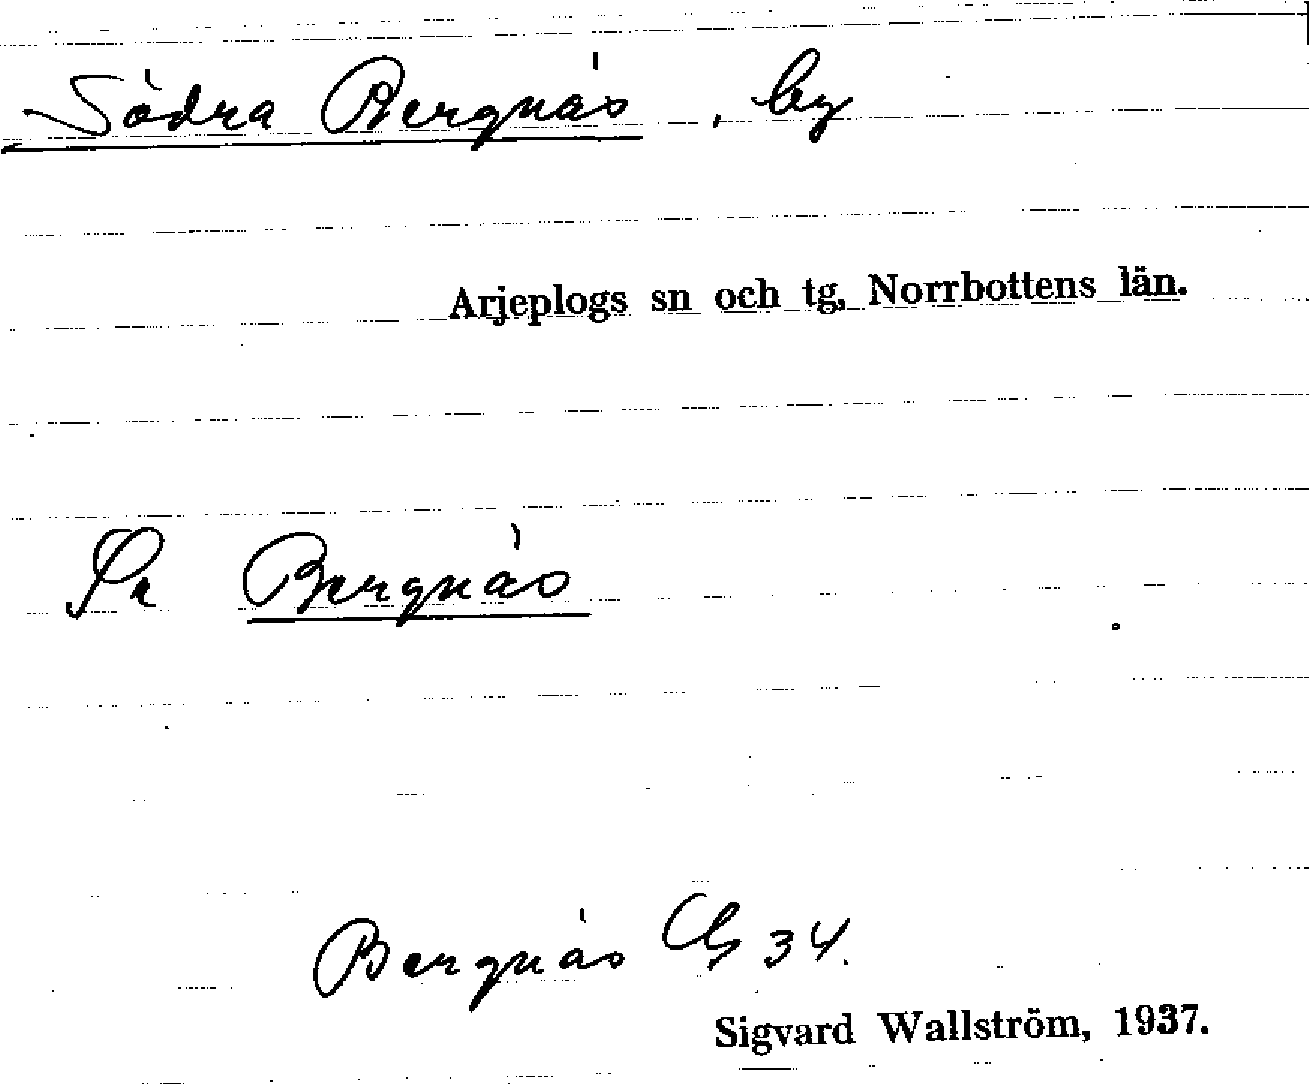 Södra Bergnäs, by
Arjeplogs sn och tg, Norrbottens län.
Sa Bergnäs
Bergnäs Cb 34.
Sigvard Wallström, 1937.